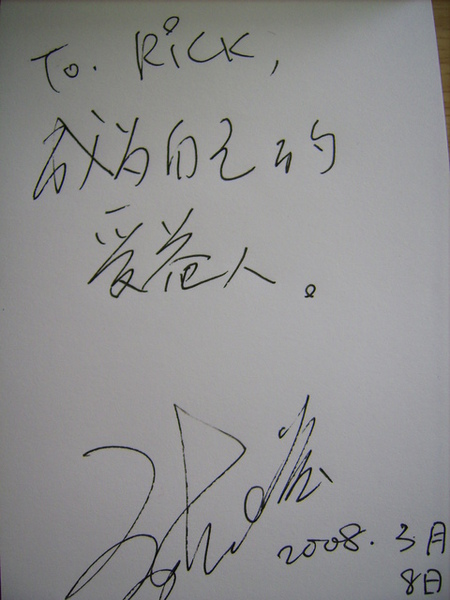 To. Rick,
成为自己的
受益人。
2008.3月
8日